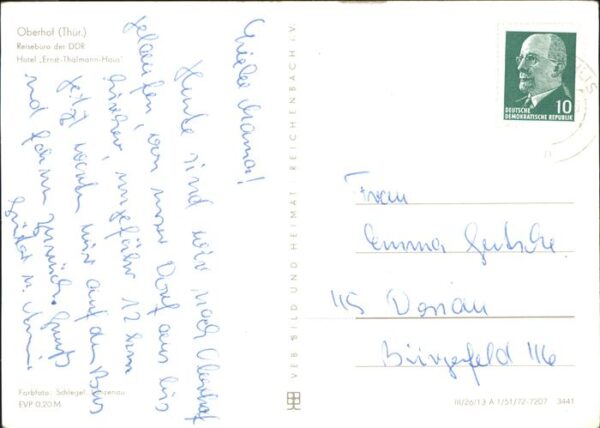 Oberhof (Thür.)
Reisebüro der DDR
Hotel „Ernst-Thälmann-Haus"
Liebe Mama!
Heute sind wir nach Oberhof
gelaufen, von unser Dorf aus bis
hierher, ungefähr 12 km
Jetzt warten wir auf den Bus
und fahren zurück. Gruß
u.
Farbfoto: Schlegel,
EVP 0,20 M
VEB BILD UND HEIMAT REICHENBACH i. V.
DEUTSCHE
DEMOKRATISCHE REPUBLIK
10
Frau
Emma
115
Bürgerfeld 116
III/26/13 A 1/51/72-7207 3441